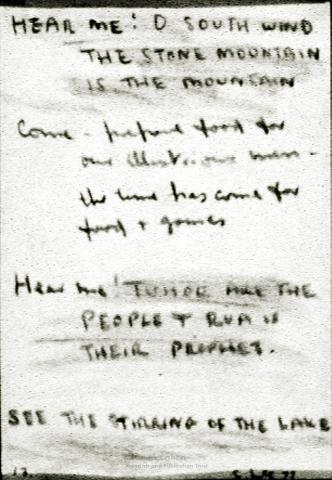 HEAR ME! O SOUTH WIND
THE STONE MOUNTAIN
IS THE MOUNTAIN
Come - prepare food for
our illustrious men -
the time has come for
food + games
Hear me! ARE THE
PEOPLE + RUM IS
THEIR PROPHET.
SEE THE STIRRING OF THE LAKE
13.